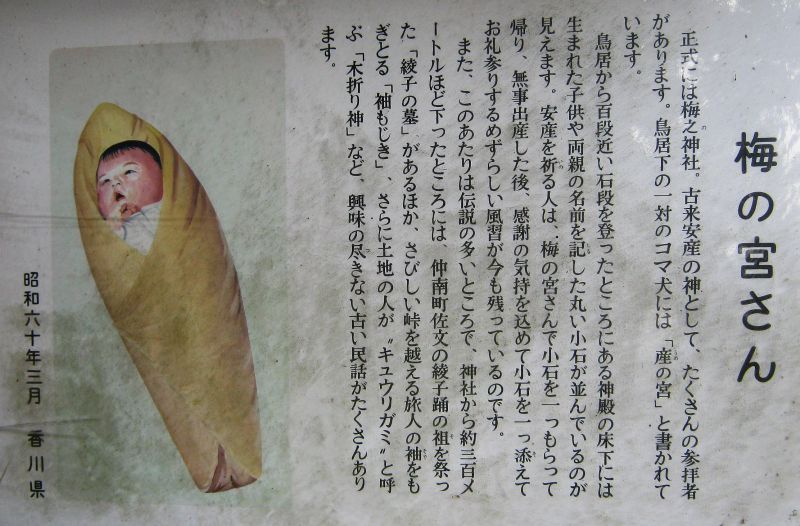 梅の宮さん
正式には梅之神社。古来安産の神として、たくさんの参拝者
があります。鳥居下の一対のコマ犬には「産の宮」と書かれて
います。
鳥居から百段近い石段を登ったところにある神殿の床下には
生まれた子供や両親の名前を記した丸い小石が並んでいるのが
見えます。安産を祈る人は、梅の宮さんで小石を一つもらって
帰り、無事出産した後、感謝の気持を込めて小石を一っ添えて
お礼参りするめずらしい風習が今も残っているのです。
また、このあたりは伝説の多いところで、神社から約三百メ
ートルほど下ったところには、仲南町佐文の綾子踊の祖を祭っ
た「綾子の墓」があるほか、さびしい峠を越える旅人の袖をも
ぎとる「袖もじき」、さらに土地の人が〝キュウリガミ〟と呼
ぶ「木折り神」など、興味の尽きない古い民話がたくさんあり
ます。
昭和六十年三月 香川県